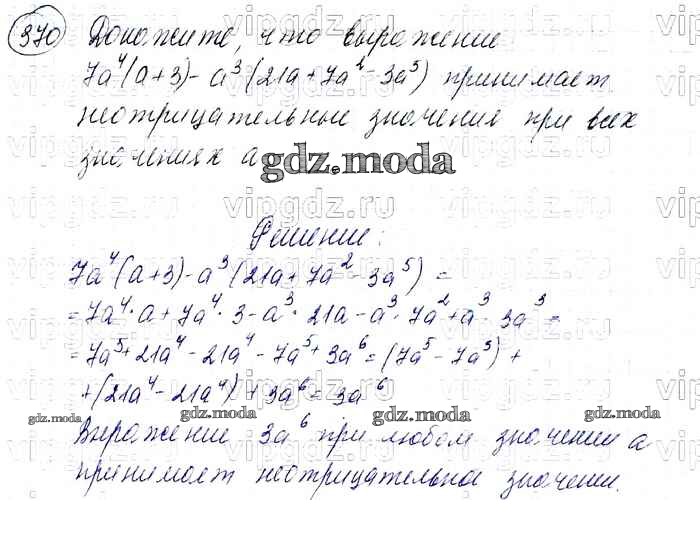 370 Докажите, что выражение
7a⁴(a+3)-a³(21a+7a²-3a⁵) принимает
неотрицательные значения при всех
значениях a
gdz.moda
Решение:
7a⁴(a+3)-a³(21a+7a²-3a⁵)=
=7a⁴·a+7a⁴·3-a³·21a-a³·7a²+a³·3a³=
=7a⁵+21a⁴-21a⁴-7a⁵+3a⁶=(7a⁵-7a⁵)+
+(21a⁴-21a⁴)+3a⁶=3a⁶
gdz.moda gdz.moda gdz.moda
Выражение 3a⁶ при любом значении a
принимает неотрицательное значение.